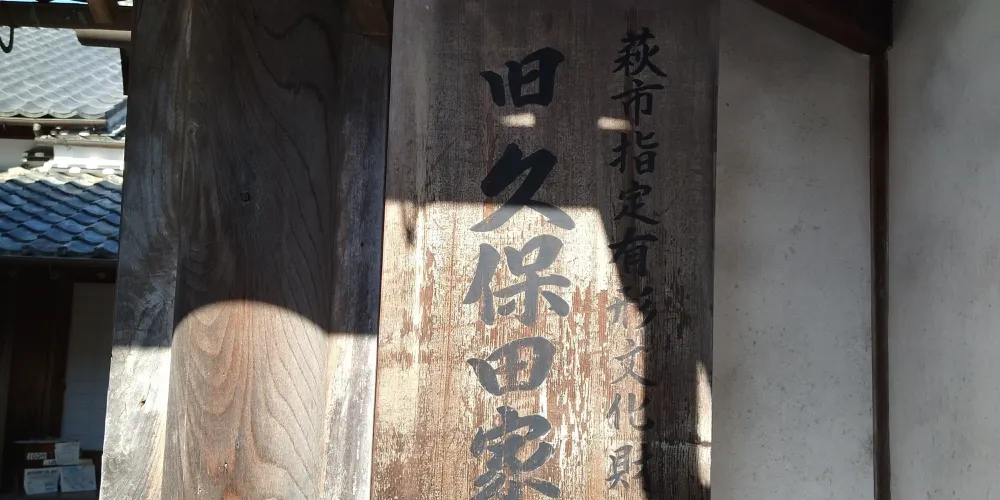 萩市指定有形文化財
旧久保田家